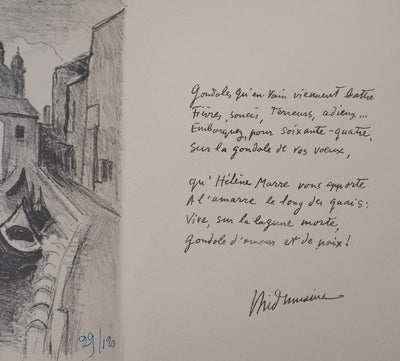 Gondoles qu'en vain viennent battre
Fièvres, soucis, Terreurs, adieux...
Embarquez, pour soixante-quatre,
Sur la gondole de vos voeux,
qu'Hélène Marre vous apporte
A l'amarre le long des quais:
Vive, sur la lagune morte,
Gondole d'amour et de paix!
29/120